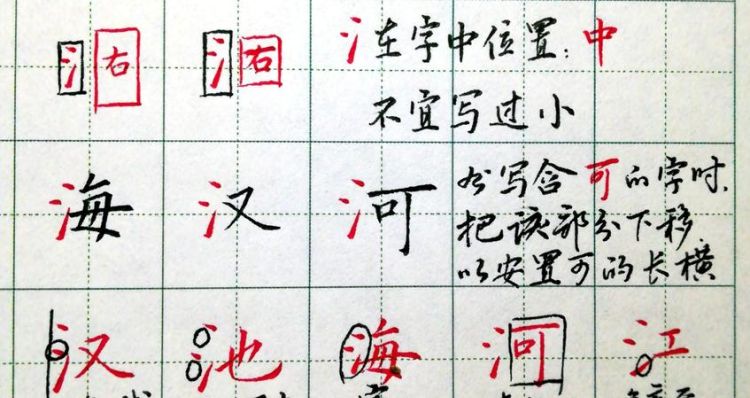 氵右 氵右 氵在字中位置:中
不宜写过小
海 汉 河
书写含可的字时,
把该部分下移
以安置可的长横
汉 池 海 河 江